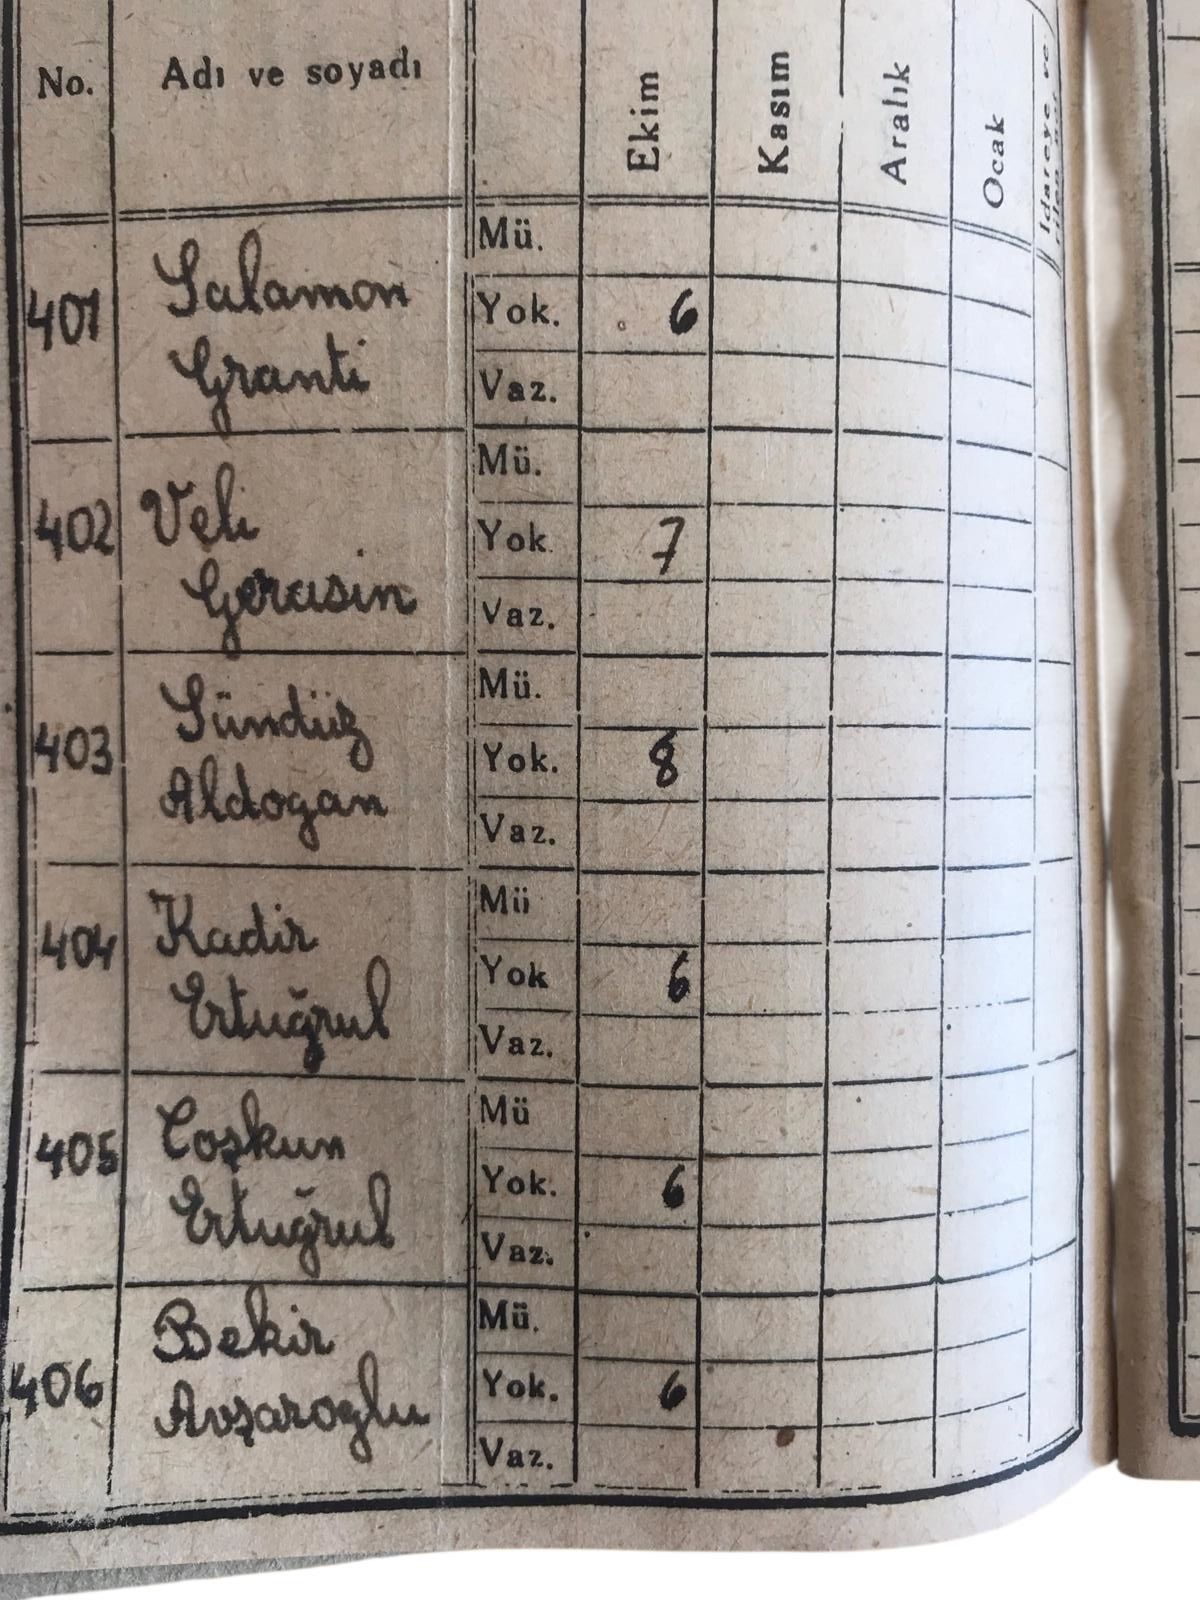 No. Adı ve soyadı Ekim Kasım Aralık Ocak İdareye ve
401 Salamon Mü.
Granti Yok. 6
Vaz.
402 Veli Mü.
Gerasin Yok 7
Vaz.
403 Sündüz Mü.
Aldogan Yok. 8
Vaz.
404 Kadir Mü
Ertuğrul Yok 6
Vaz.
405 Coşkun Mü
Ertuğrul Yok. 6
Vaz.
406 Bekir Mü.
Avşaroglu Yok. 6
Vaz.